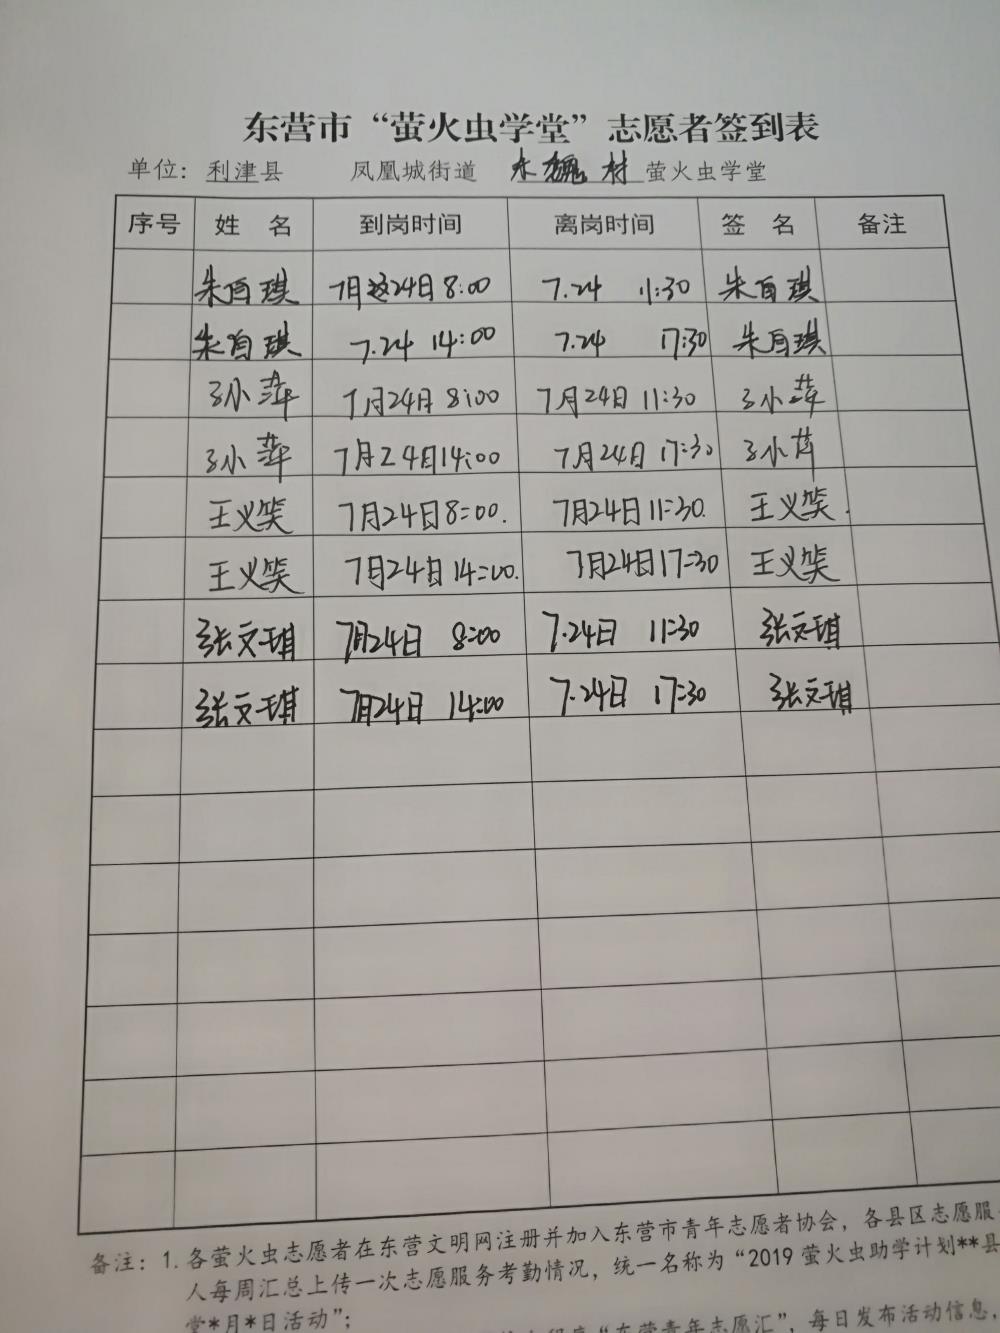 东营市“萤火虫学堂”志愿者签到表
单位：利津县 凤凰城街道 东魏村 萤火虫学堂
序号 姓名 到岗时间 离岗时间 签名 备注
朱百琪 7月24日 8:00 7.24 11:30 朱百琪
朱百琪 7.24 14:00 7.24 17:30 朱百琪
孙小萍 7月24日 8:00 7月24日 11:30 孙小萍
孙小萍 7月24日14:00 7月24日 17:30 孙小萍
王义笑 7月24日8:00. 7月24日11:30. 王义笑.
王义笑 7月24日14:00. 7月24日17:30 王义笑
张文琪 7月24日 8:00 7.24日 11:30 张文琪
张文琪 7月24日 14:00 7.24日 17:30 张文琪
备注：1.各萤火虫志愿者在东营文明网注册并加入东营市青年志愿者协会，各县区志愿服
人每周汇总上传一次志愿服务考勤情况，统一名称为“2019萤火虫助学计划**县
堂*月*日活动”；
“东营青年志愿汇”，每日发布活动信息，